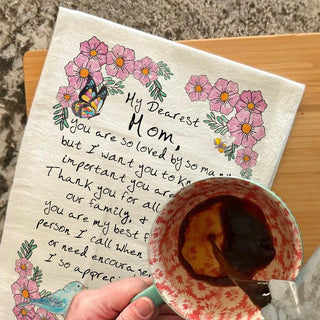 My Dearest
Mom,
you are so loved by so
but I want you to
important you are
Thank you for all
our family, &
you are my best
person I call when
or need
I so